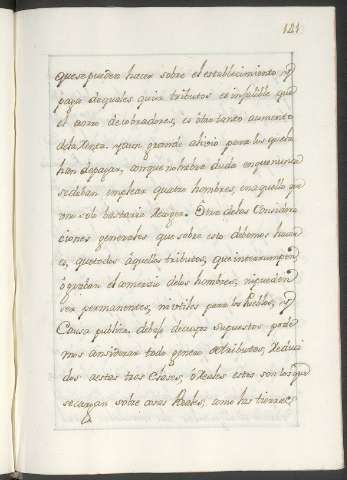 121
que se pueden hacer sobre el establecimiento, y
paga de quales quier tributos es infalible que
el ahorro de cobradores, es otro tanto aumento
de la Renta, y aun grande alivio para los que la
han de pagar, aunque no habrá duda en que nunca
se deban emplear quatro hombres, en aquello que
uno solo bastaria
Otra de las Considera
ciones generales que sobre esto debemos hacer
es, que todos aquellos tributos, que interrumpen,
ó gravan el comercio de los hombres, ni pueden
ser permanentes, ni utiles para los Pueblos, y
Causa publica. debajo de cuyos supuestos pode
mos considerar todo genero de tributos, Reduci
dos a estas tres Clases, ó Reales estos son los que
se cargan sobre cosas Reales, como las tierras,